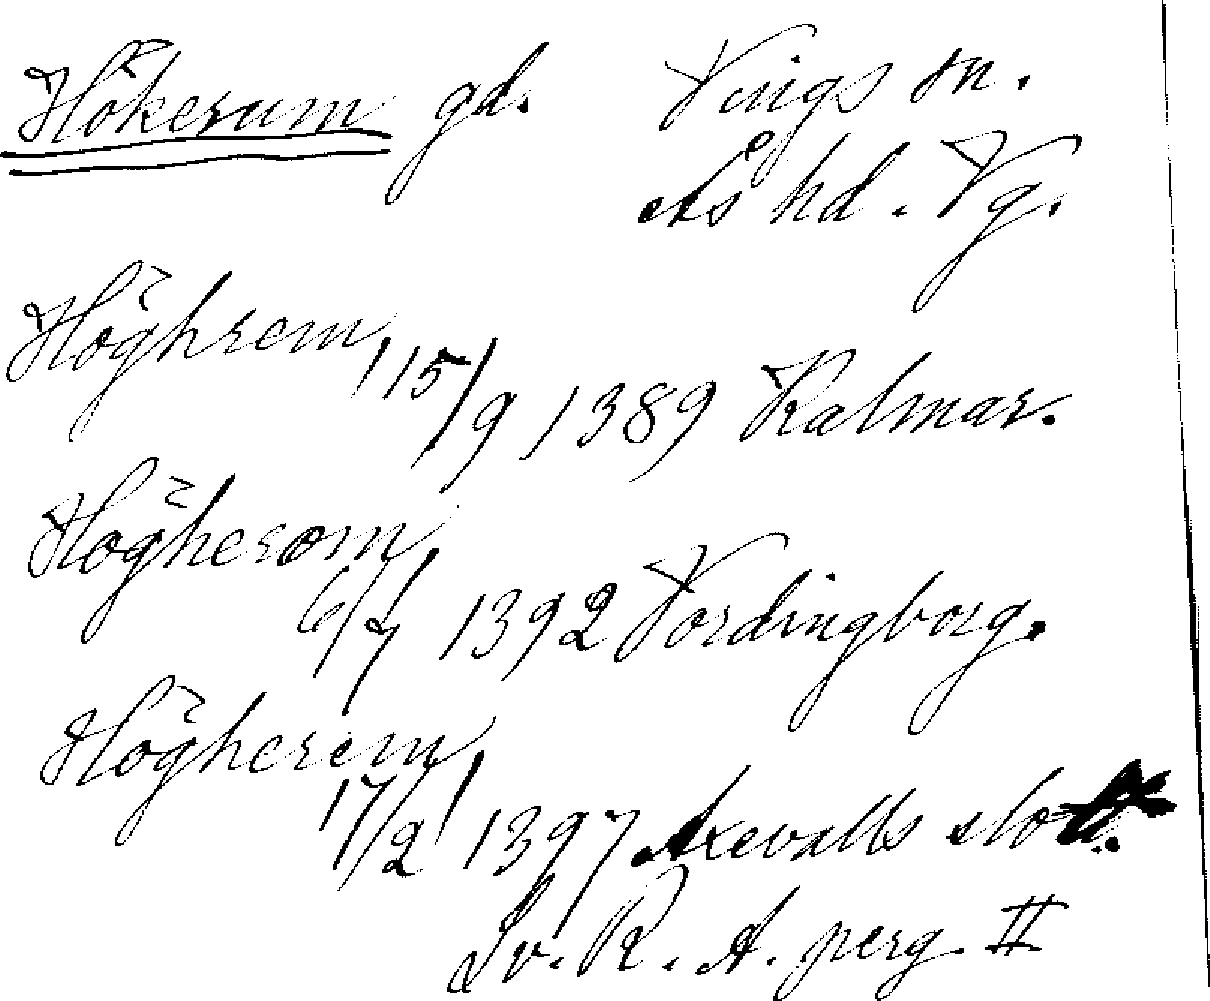 Hökerum gd. Vings sn.
Ås hd. Vg.
Höghrem
15/9 1389 Kalmar.
Högherom
6/7 1392 Vordingborg.
Högherem
17/2 1397 Axevalls slott.
Sv. R. A. perg. II